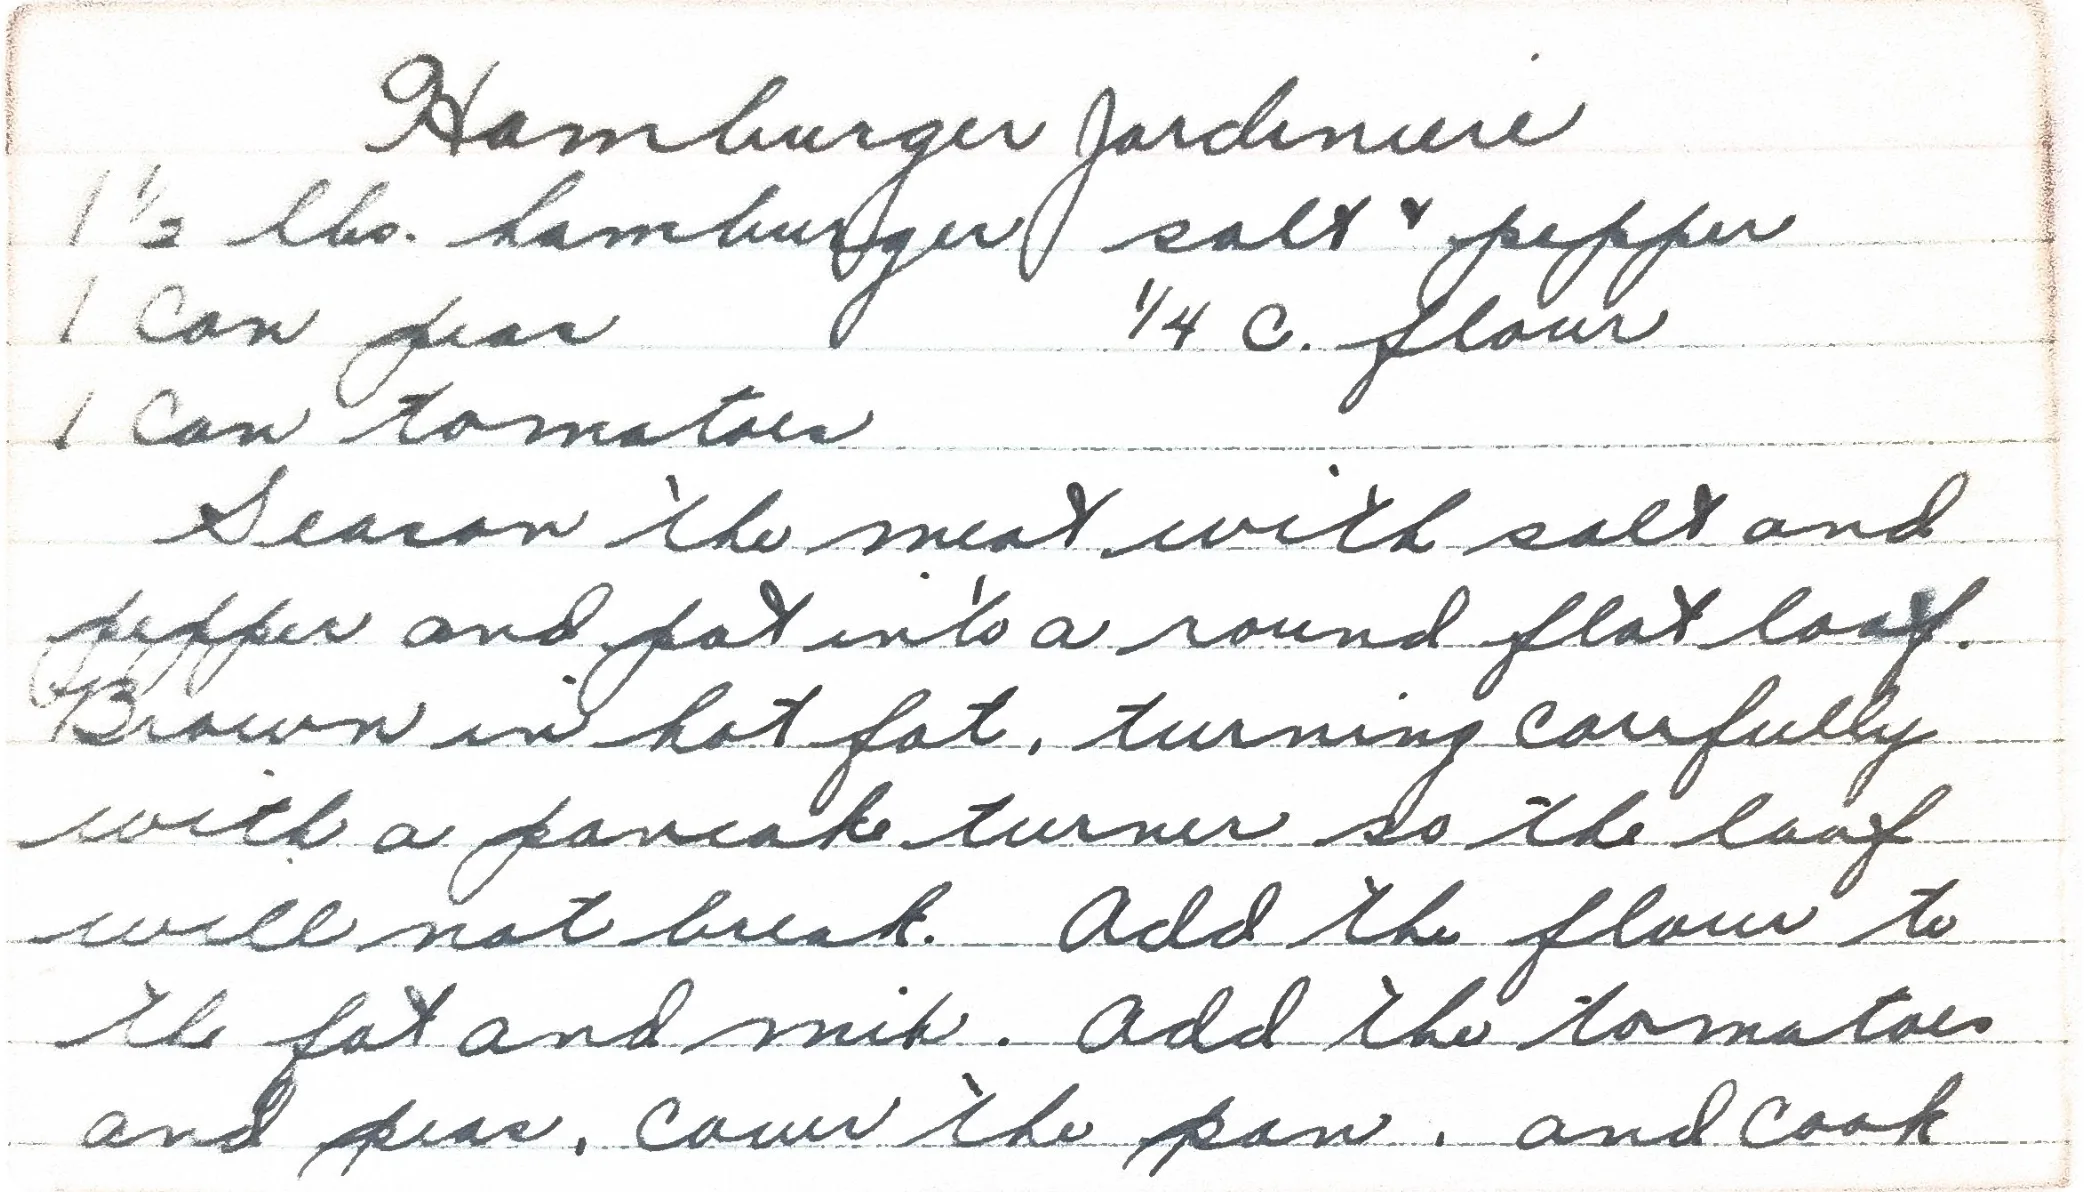 Hamburger Jardiniere
1 1/2 lbs. hamburger salt & pepper
1 Can peas 1/4 C. flour
1 Can tomatoes
Season the meat with salt and
pepper and pat into a round flat loaf.
Brown in hot fat, turning carefully
with a pancake turner so the loaf
will not break. Add the flour to
the fat and mix. Add the tomatoes
and peas, cover the pan, and cook